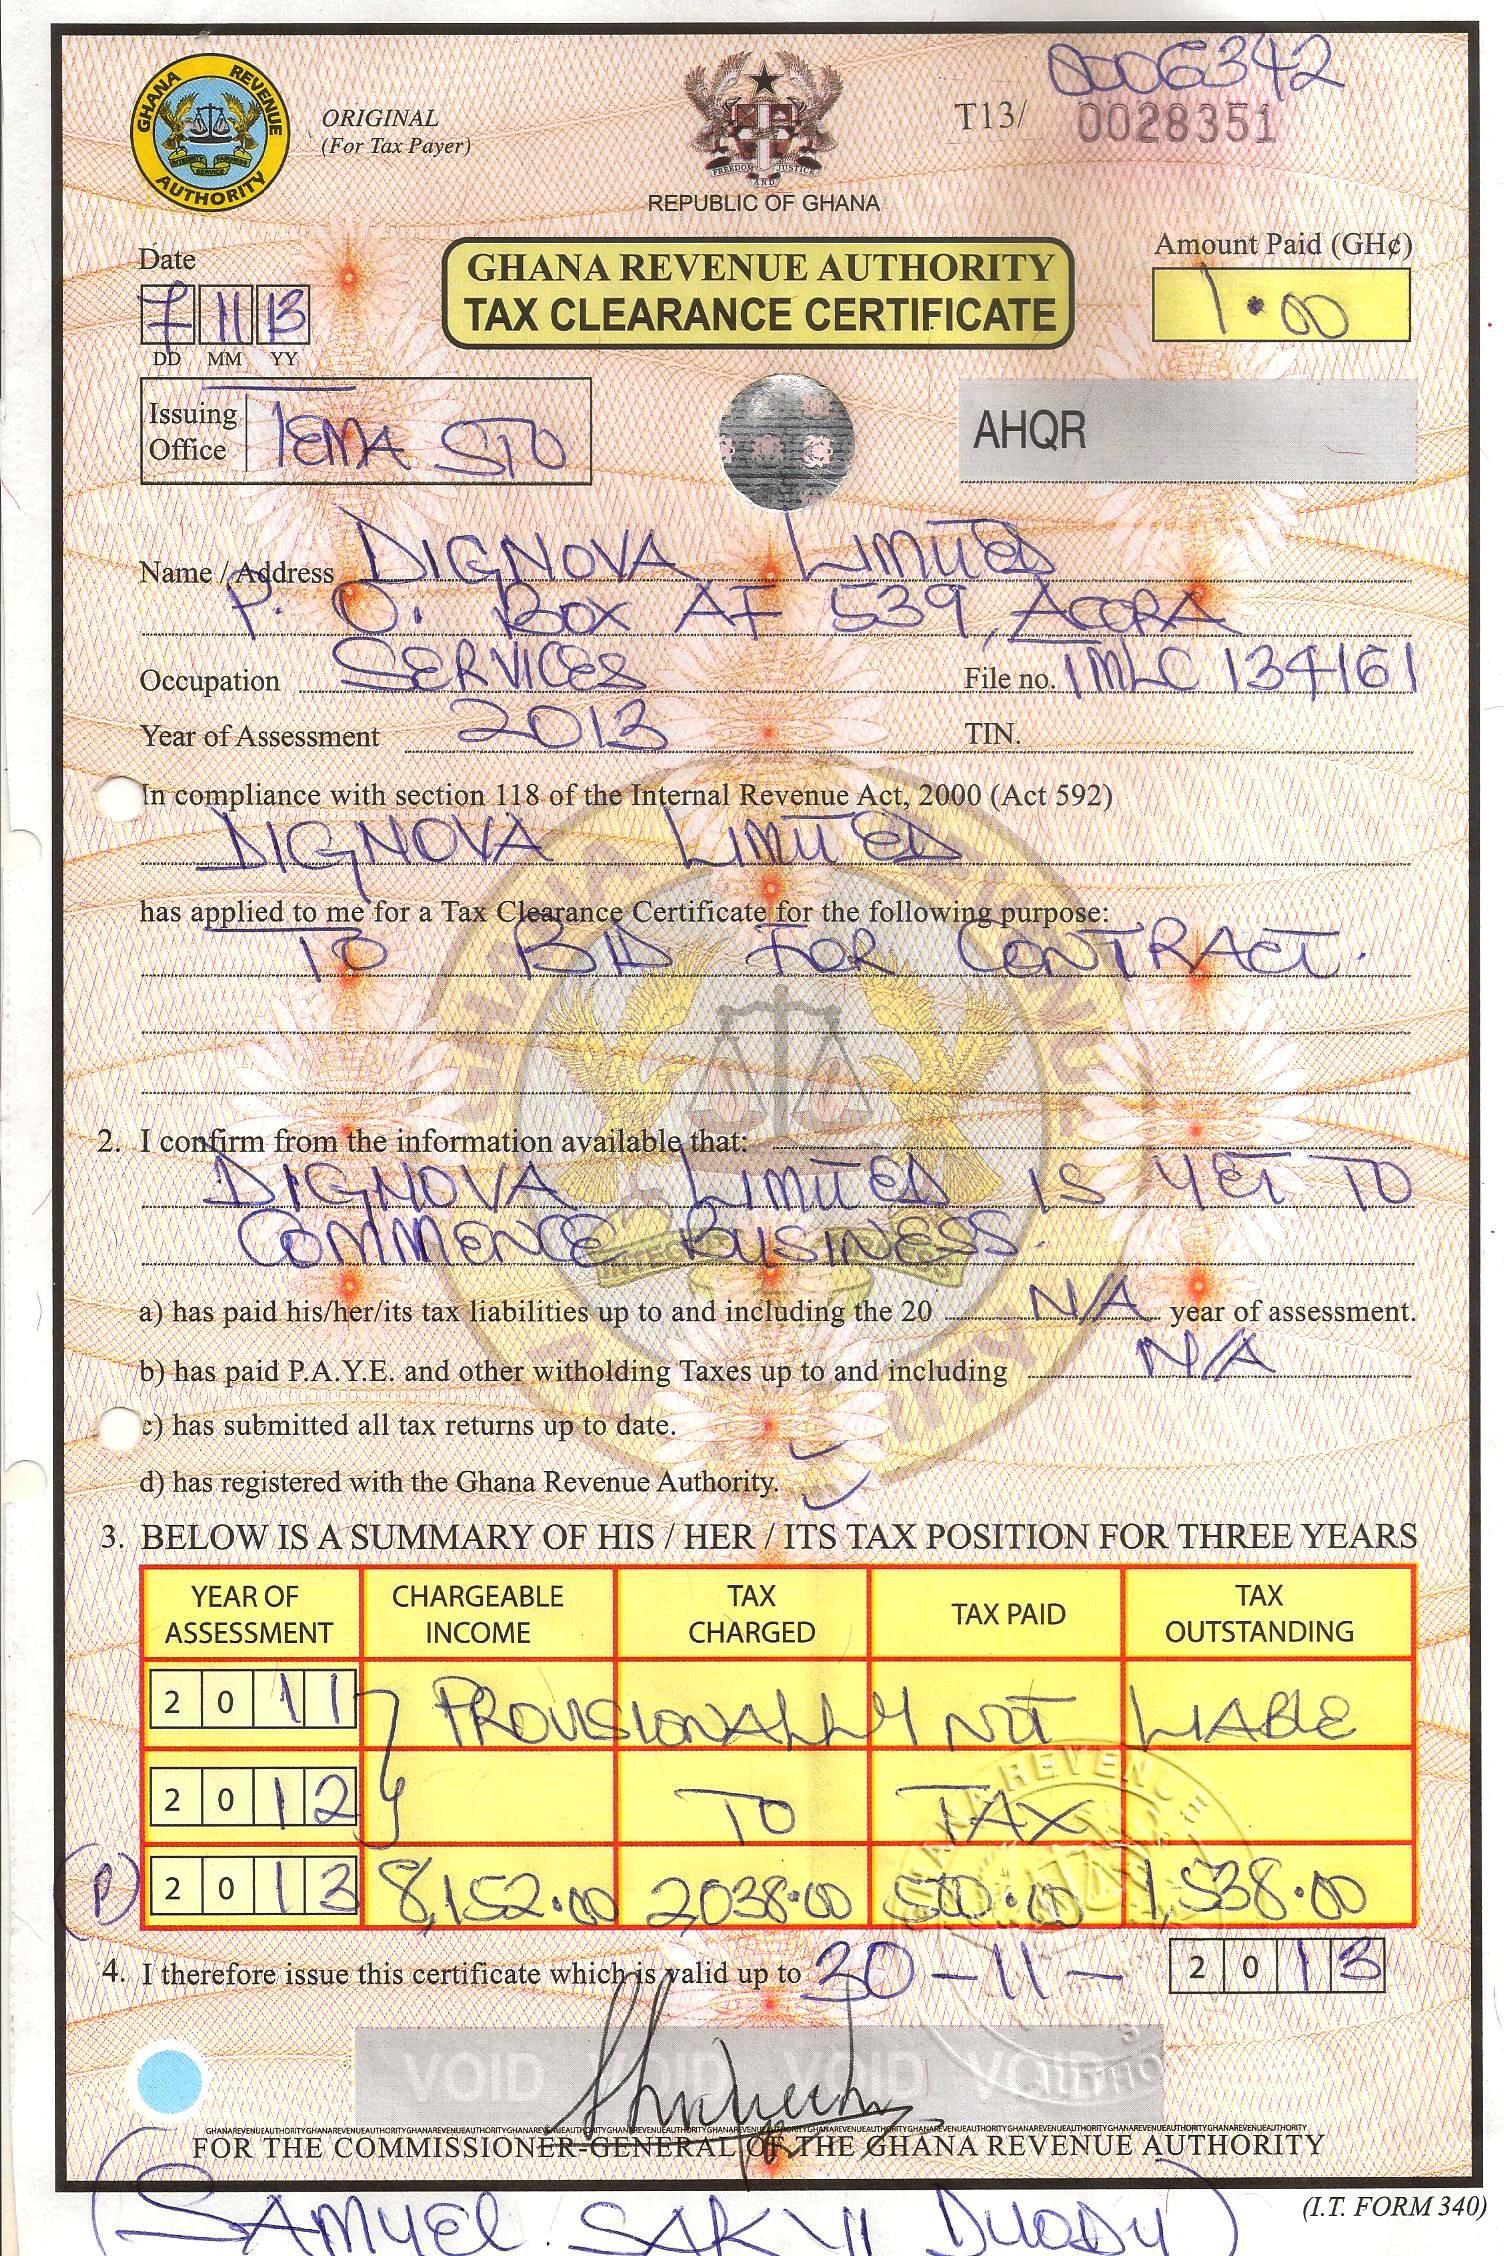 GHANA REVENUE AUTHORITY
INTEGRITY FAIRNESS SERVICE
ORIGINAL
(For Tax Payer)
FREEDOM AND JUSTICE
REPUBLIC OF GHANA
0006342
T13/ 0028351
Date
7 11 13
DD MM YY
GHANA REVENUE AUTHORITY
TAX CLEARANCE CERTIFICATE
Amount Paid (GH¢)
1.00
Issuing Office TEMA STO
AHQR
Name / Address DIGNOVA LIMITED
P. O. BOX AF 539, ACCRA
Occupation SERVICES File no. TMLC 134161
Year of Assessment 2013 TIN.
In compliance with section 118 of the Internal Revenue Act, 2000 (Act 592)
DIGNOVA LIMITED
has applied to me for a Tax Clearance Certificate for the following purpose:
TO BID FOR CONTRACT.
2. I confirm from the information available that:
DIGNOVA LIMITED IS YET TO
COMMENCE BUSINESS.
a) has paid his/her/its tax liabilities up to and including the 20 N/A year of assessment.
b) has paid P.A.Y.E. and other witholding Taxes up to and including N/A
c) has submitted all tax returns up to date.
d) has registered with the Ghana Revenue Authority.
3. BELOW IS A SUMMARY OF HIS / HER / ITS TAX POSITION FOR THREE YEARS
YEAR OF ASSESSMENT CHARGEABLE INCOME TAX CHARGED TAX PAID TAX OUTSTANDING
2011 PROVISIONALLY NOT LIABLE
2012 TO TAX
(P) 2013 8,152.00 2,038.00 500.00 1,538.00
4. I therefore issue this certificate which is valid up to 30-11- 2013
VOID VOID VOID VOID
GHANAREVENUEAUTHORITYGHANAREVENUEAUTHORITYGHANAREVENUEAUTHORITY
FOR THE COMMISSIONER-GENERAL OF THE GHANA REVENUE AUTHORITY
(I.T. FORM 340)
(SAMUEL SAKYI DUODU)